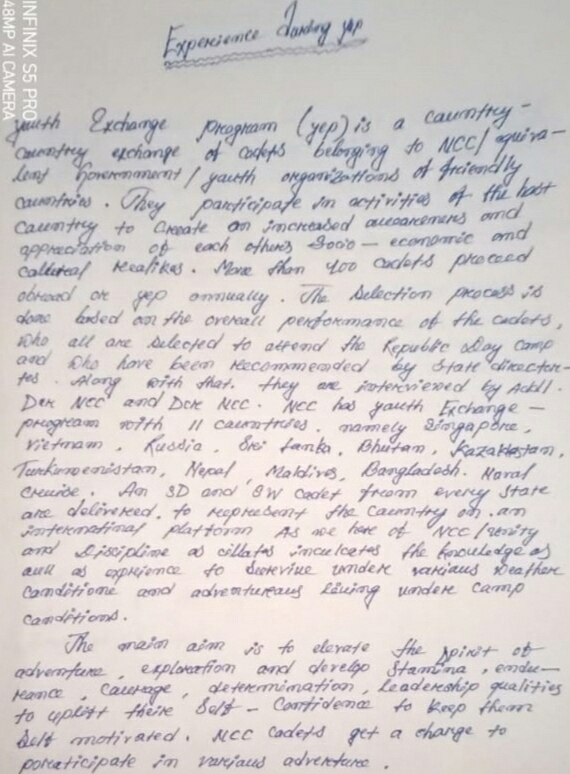 INFINIX S5 PRO
48MP AI CAMERA
Experience During yep
youth Exchange program (yep) is a country-
country exchange of cadets belonging to NCC/equiva-
lent Government/youth organizations of friendly
countries. They participate in activities of the host
country to create an increased awareness and
appreciation of each other's Socio-economic and
cultural realikes. More than 400 cadets proceed
abroad on yep annually. The Selection process is
done based on the overall performance of the cadets,
who all are selected to attend the Republic Day camp
and who have been recommended by State director-
tes. Along with that. they are interviewed by Addl.
DGR NCC and DGR NCC. NCC has youth Exchange-
program with 11 countries. namely Singapore,
Vietnam, Russia, Sri Lanka, Bhutan, Kazakhstan,
Turkumenistan, Nepal, Maldives, Bangladesh. Naval
cruise. An SD and SW cadet from every State
are delivered. to represent the country on. an
internatinal platform As we here of NCC/unity
and Discipline as inculcates the knowledge as
well as exprience to Survive under various weather
conditione and adventureaus living under camp
conditions.
The main aim is to elevate the spirit of
adventure, exploration and develop Stamina, endu-
rance, Courage, determination, Leadership qualities
to uplift their Self-Confidence to keep them
Self motivated. NCC Cadets get a change to
participate in various adventure.